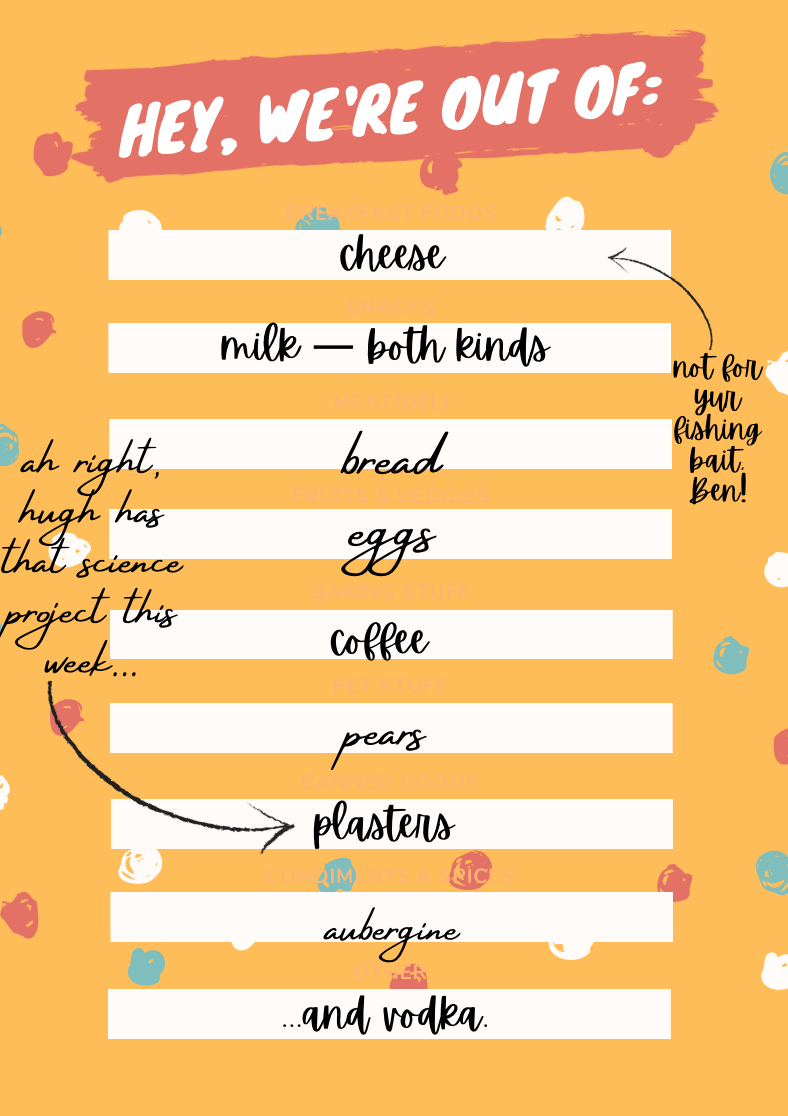 HEY, WE'RE OUT OF:
BREAKFAST FOODS
cheese
SNACKS
milk — both kinds
not for
yur
fishing
bait,
Ben!
MEAT/DELI
bread
FRUITS & VEGGIES
eggs
BAKING STUFF
coffee
ah right,
hugh has
that science
project this
week...
PET STUFF
pears
CANNED GOODS
plasters
CONDIMENTS & SPICES
aubergine
OTHER
...and vodka.